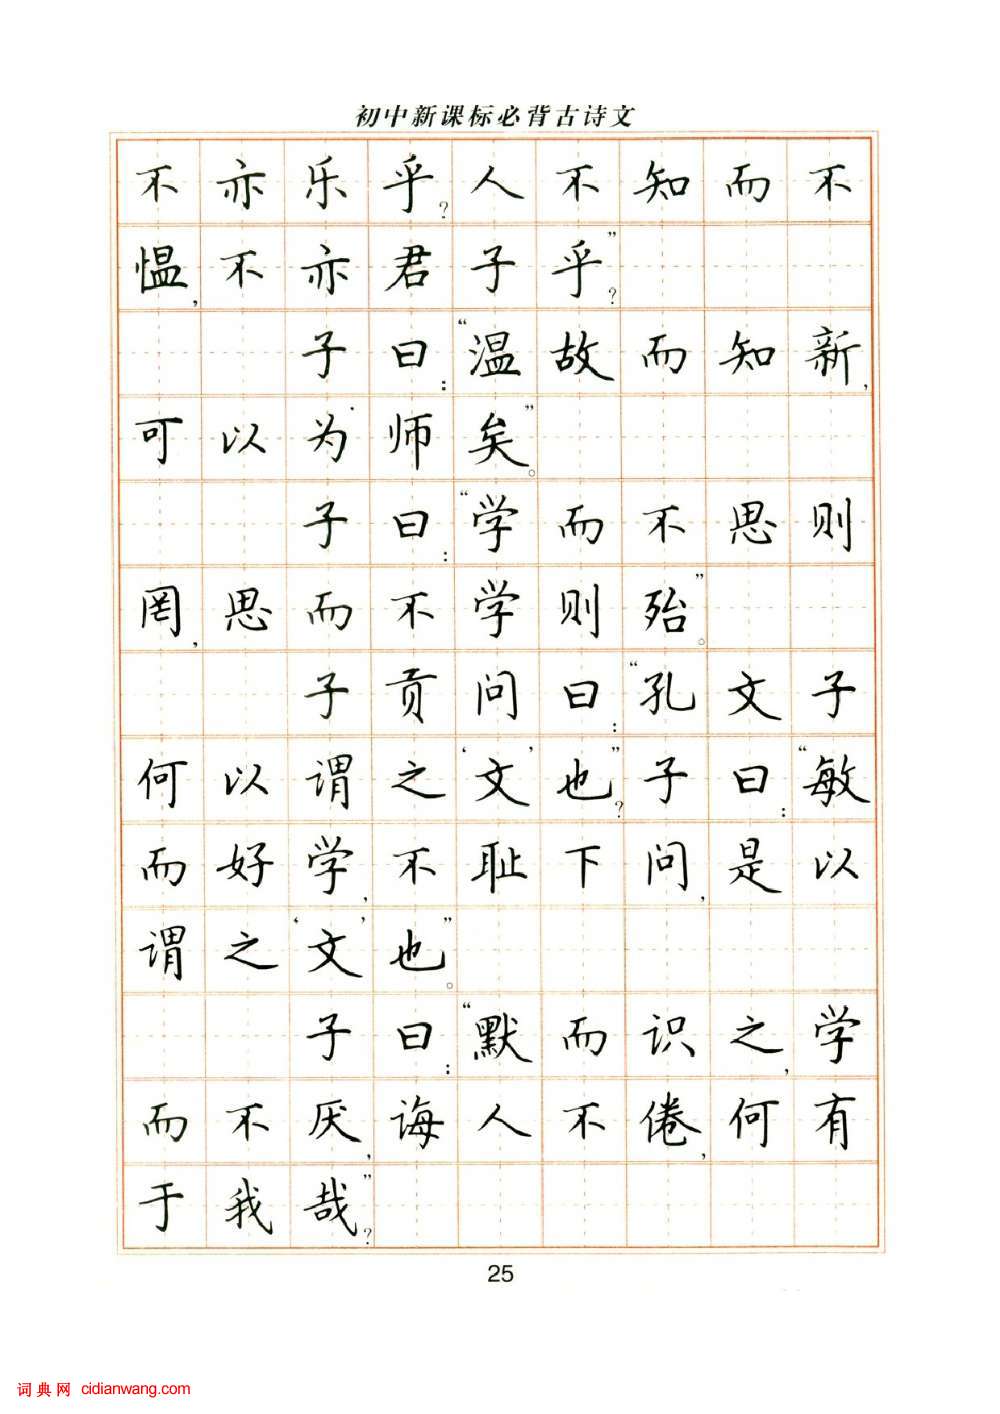 初中新课标必背古诗文
不亦乐乎?人不知而不
愠,不亦君子乎?”
子曰:“温故而知新,
可以为师矣。”
子曰:“学而不思则
罔,思而不学则殆。”
子贡问曰:“孔文子
何以谓之‘文’也?”子曰:“敏
而好学,不耻下问,是以
谓之‘文’也。”
子曰:“默而识之,学
而不厌,诲人不倦,何有
于我哉?”
25
词典网 cidianwang.com